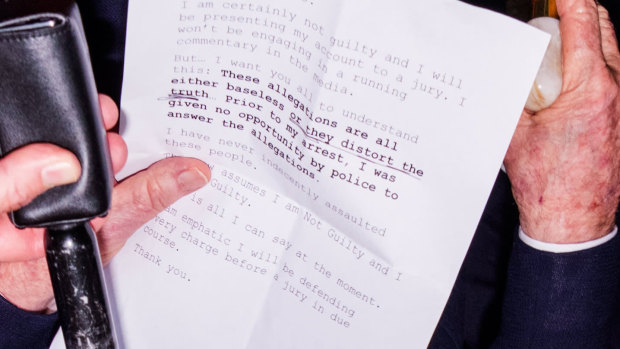 I am certainly not guilty and I will
be presenting my account to a jury. I
won't be engaging in a running
commentary in the media.
But… I want you all to understand
this: These allegations are all
either baseless or they distort the
truth… Prior to my arrest, I was
given no opportunity by police to
answer the allegations.
I have never indecently assaulted
these people.
assumes I am Not Guilty and I
Guilty.
is all I can say at the moment.
am emphatic I will be defending
every charge before a jury in due
course.
Thank you.